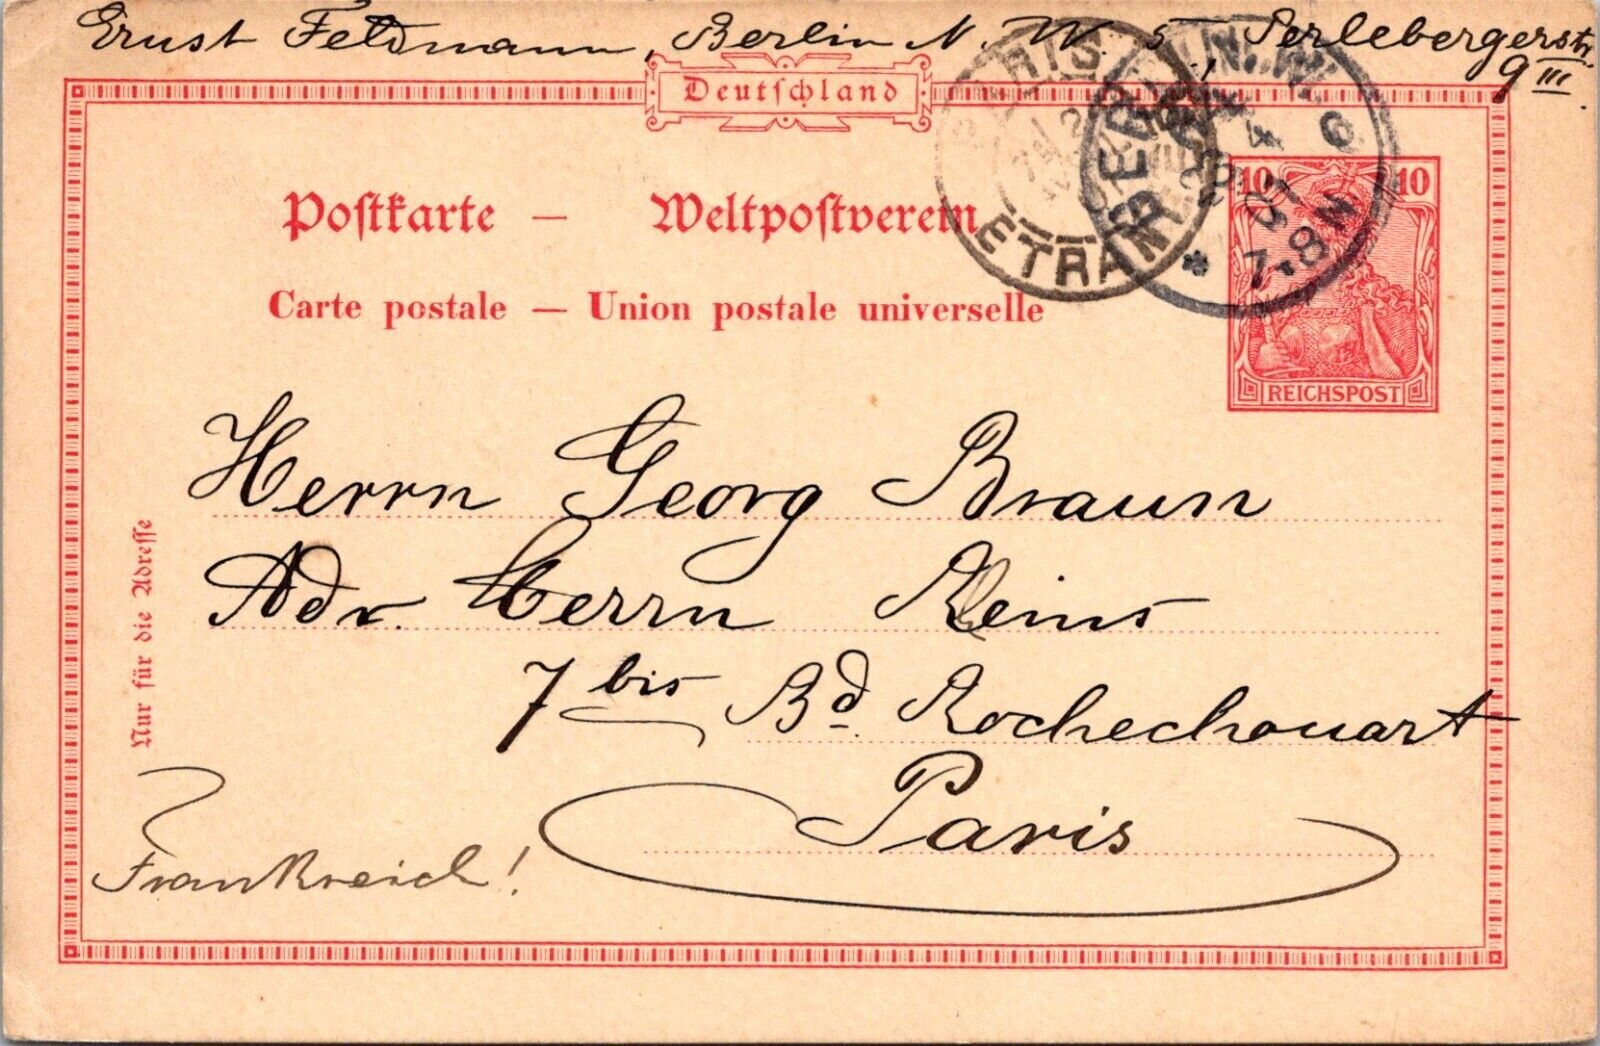 Ernst Feldmann, Berlin N. W. 5 Perlebergerstr.
9 III.
Deutſchland
PARIS
ETRAN
BERLIN N.W. 6
4
7-8 N
10 10
REICHSPOST
Poſtkarte — Weltpoſtverein
Carte postale — Union postale universelle
Herrn Georg Braun
Adr. Herrn Reins
7 bis Bd. Rochechouart
Paris
Frankreich!
Nur für die Adreſſe